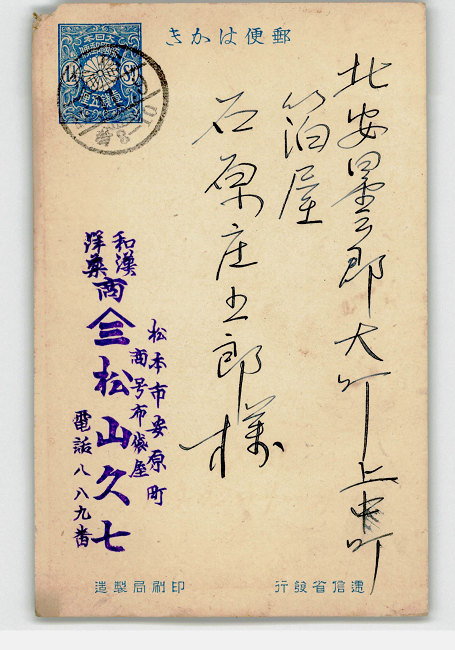 郵便はかき
大日本
北安曇郡大町上中町
箔屋
石原庄五郎様
松本市安原町
商号布袋屋
和漢
洋薬
商
松山久七
電話八八九番
逓信省発行
印刷局製造